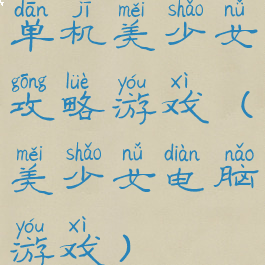 dān jī měi shǎo nǚ
单机美少女
gōng lüè yóu xì
攻略游戏（
měi shǎo nǚ diàn nǎo
美少女电脑
yóu xì
游戏）